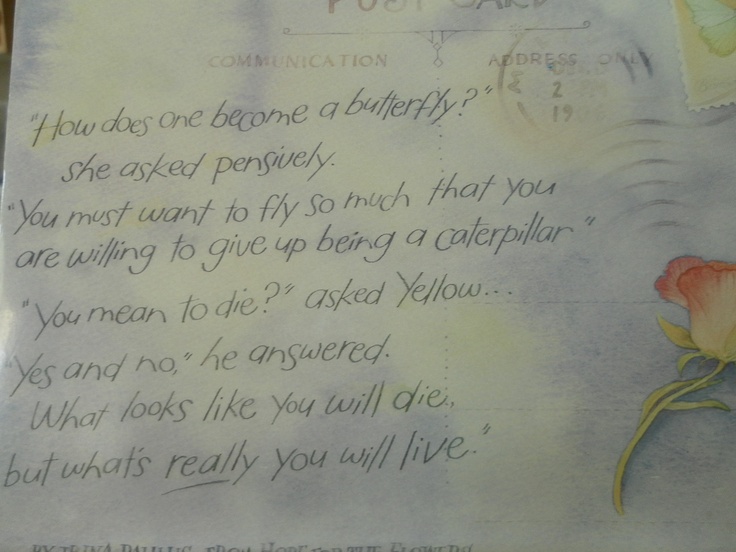 POST CARD
COMMUNICATION
ADDRESS ONLY
2
19
"How does one become a butterfly?"
she asked pensively.
"You must want to fly so much that you
are willing to give up being a caterpillar"
"You mean to die?" asked Yellow...
"Yes and no," he answered.
What looks like you will die,
but what's really you will live."
BY TRINA PAULUS, FROM HOPE FOR THE FLOWERS